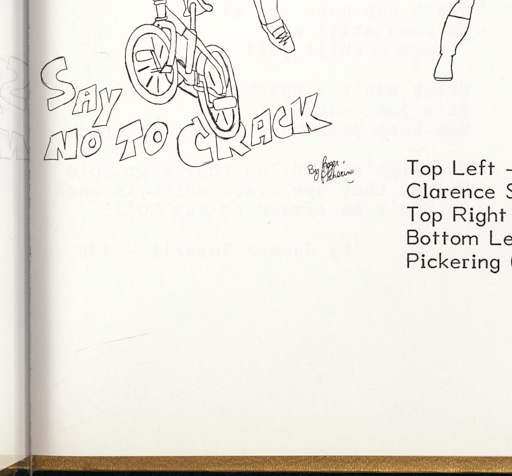 SAY
NO TO CRACK
By Roger
Pickering
Top Left -
Clarence S
Top Right
Bottom Le
Pickering (